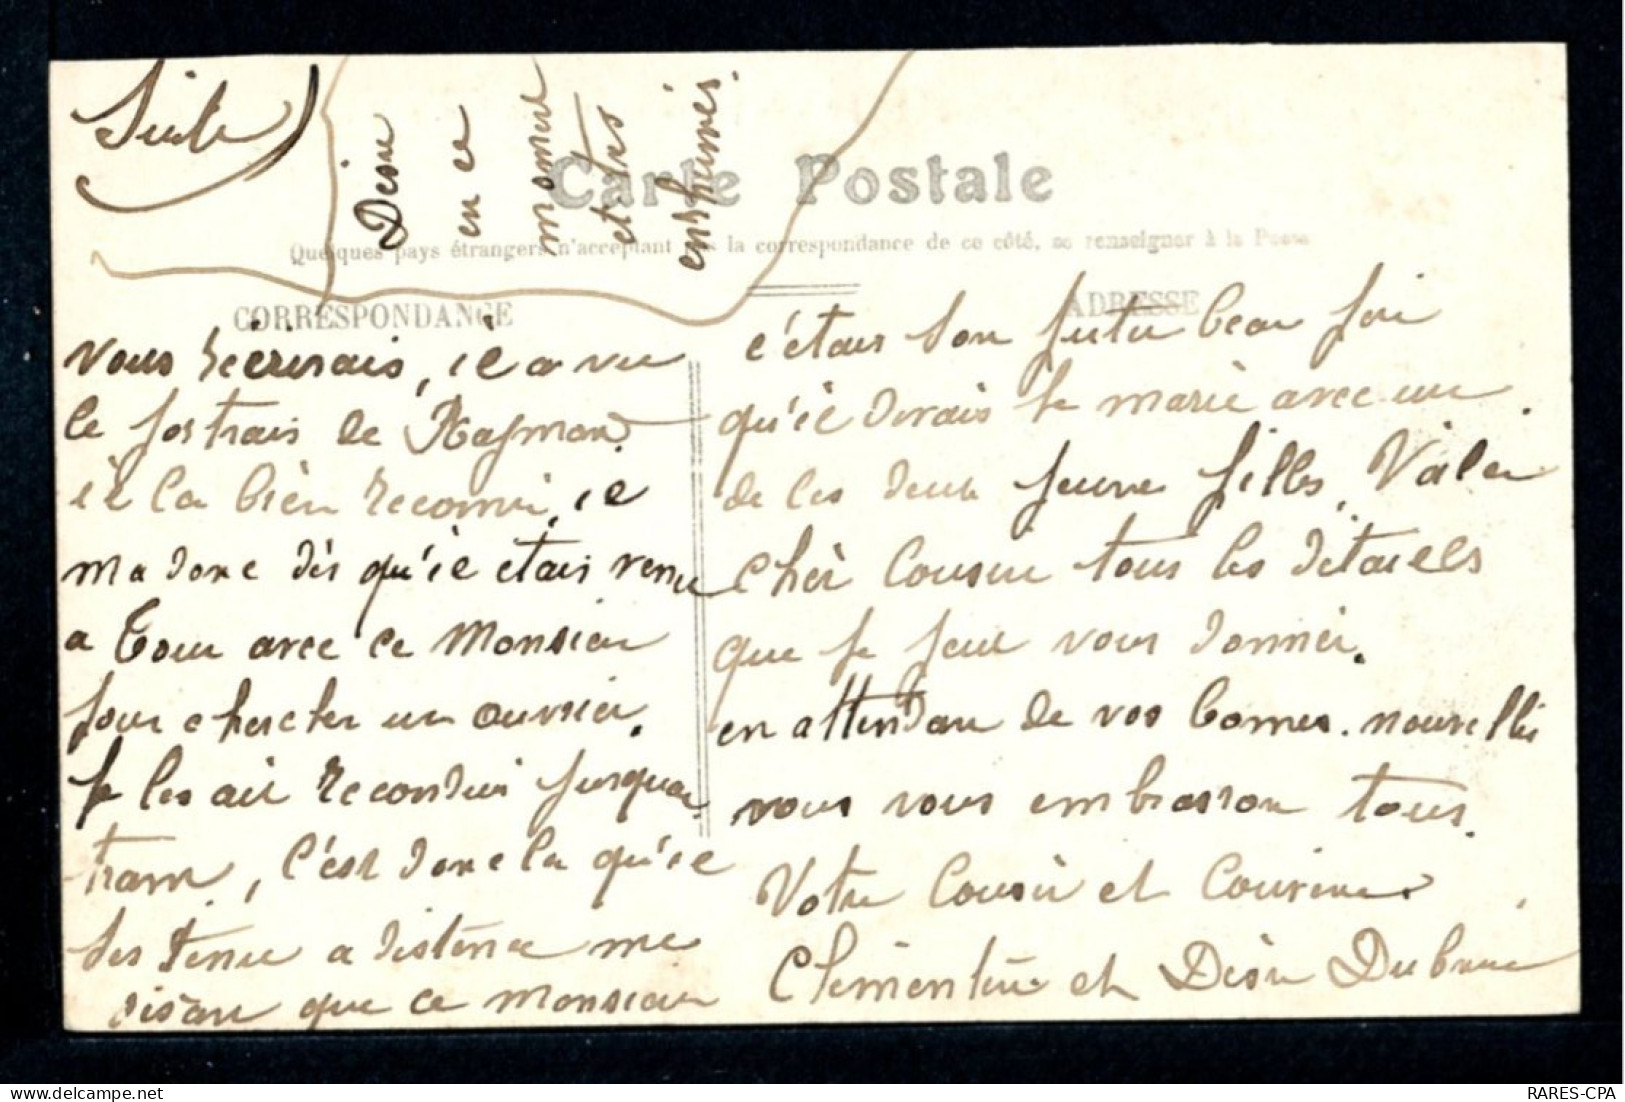 Suite
Désiré
en ce
moment
et très
enrhumés.
Carte Postale
Quelques pays étrangers n'acceptant pas la correspondance de ce côté, se renseigner à la Poste
CORRESPONDANCE
ADRESSE
vous récrirais, il a vu
le portrais de Raymond
il la bien reconnu, il
ma donc dis qu'il étais venu
a Tour avec ce Monsieur
pour chercher un ouvrier.
Je les ait reconduis jusquau
tram, c'est donc la qu'il
ses tenu a distence me
disant que ce monsieur
c'étais son futur beau
qu'il devais se marié avec une
de les deux jeune filles, Voila
cher Cousin tous les détaiells
que je peut vous donner.
en attendant de vos bonnes nouvelles
nous vous embrasson tous.
Votre Cousin et Cousine
Clémentine et Désiré
RARES-CPA